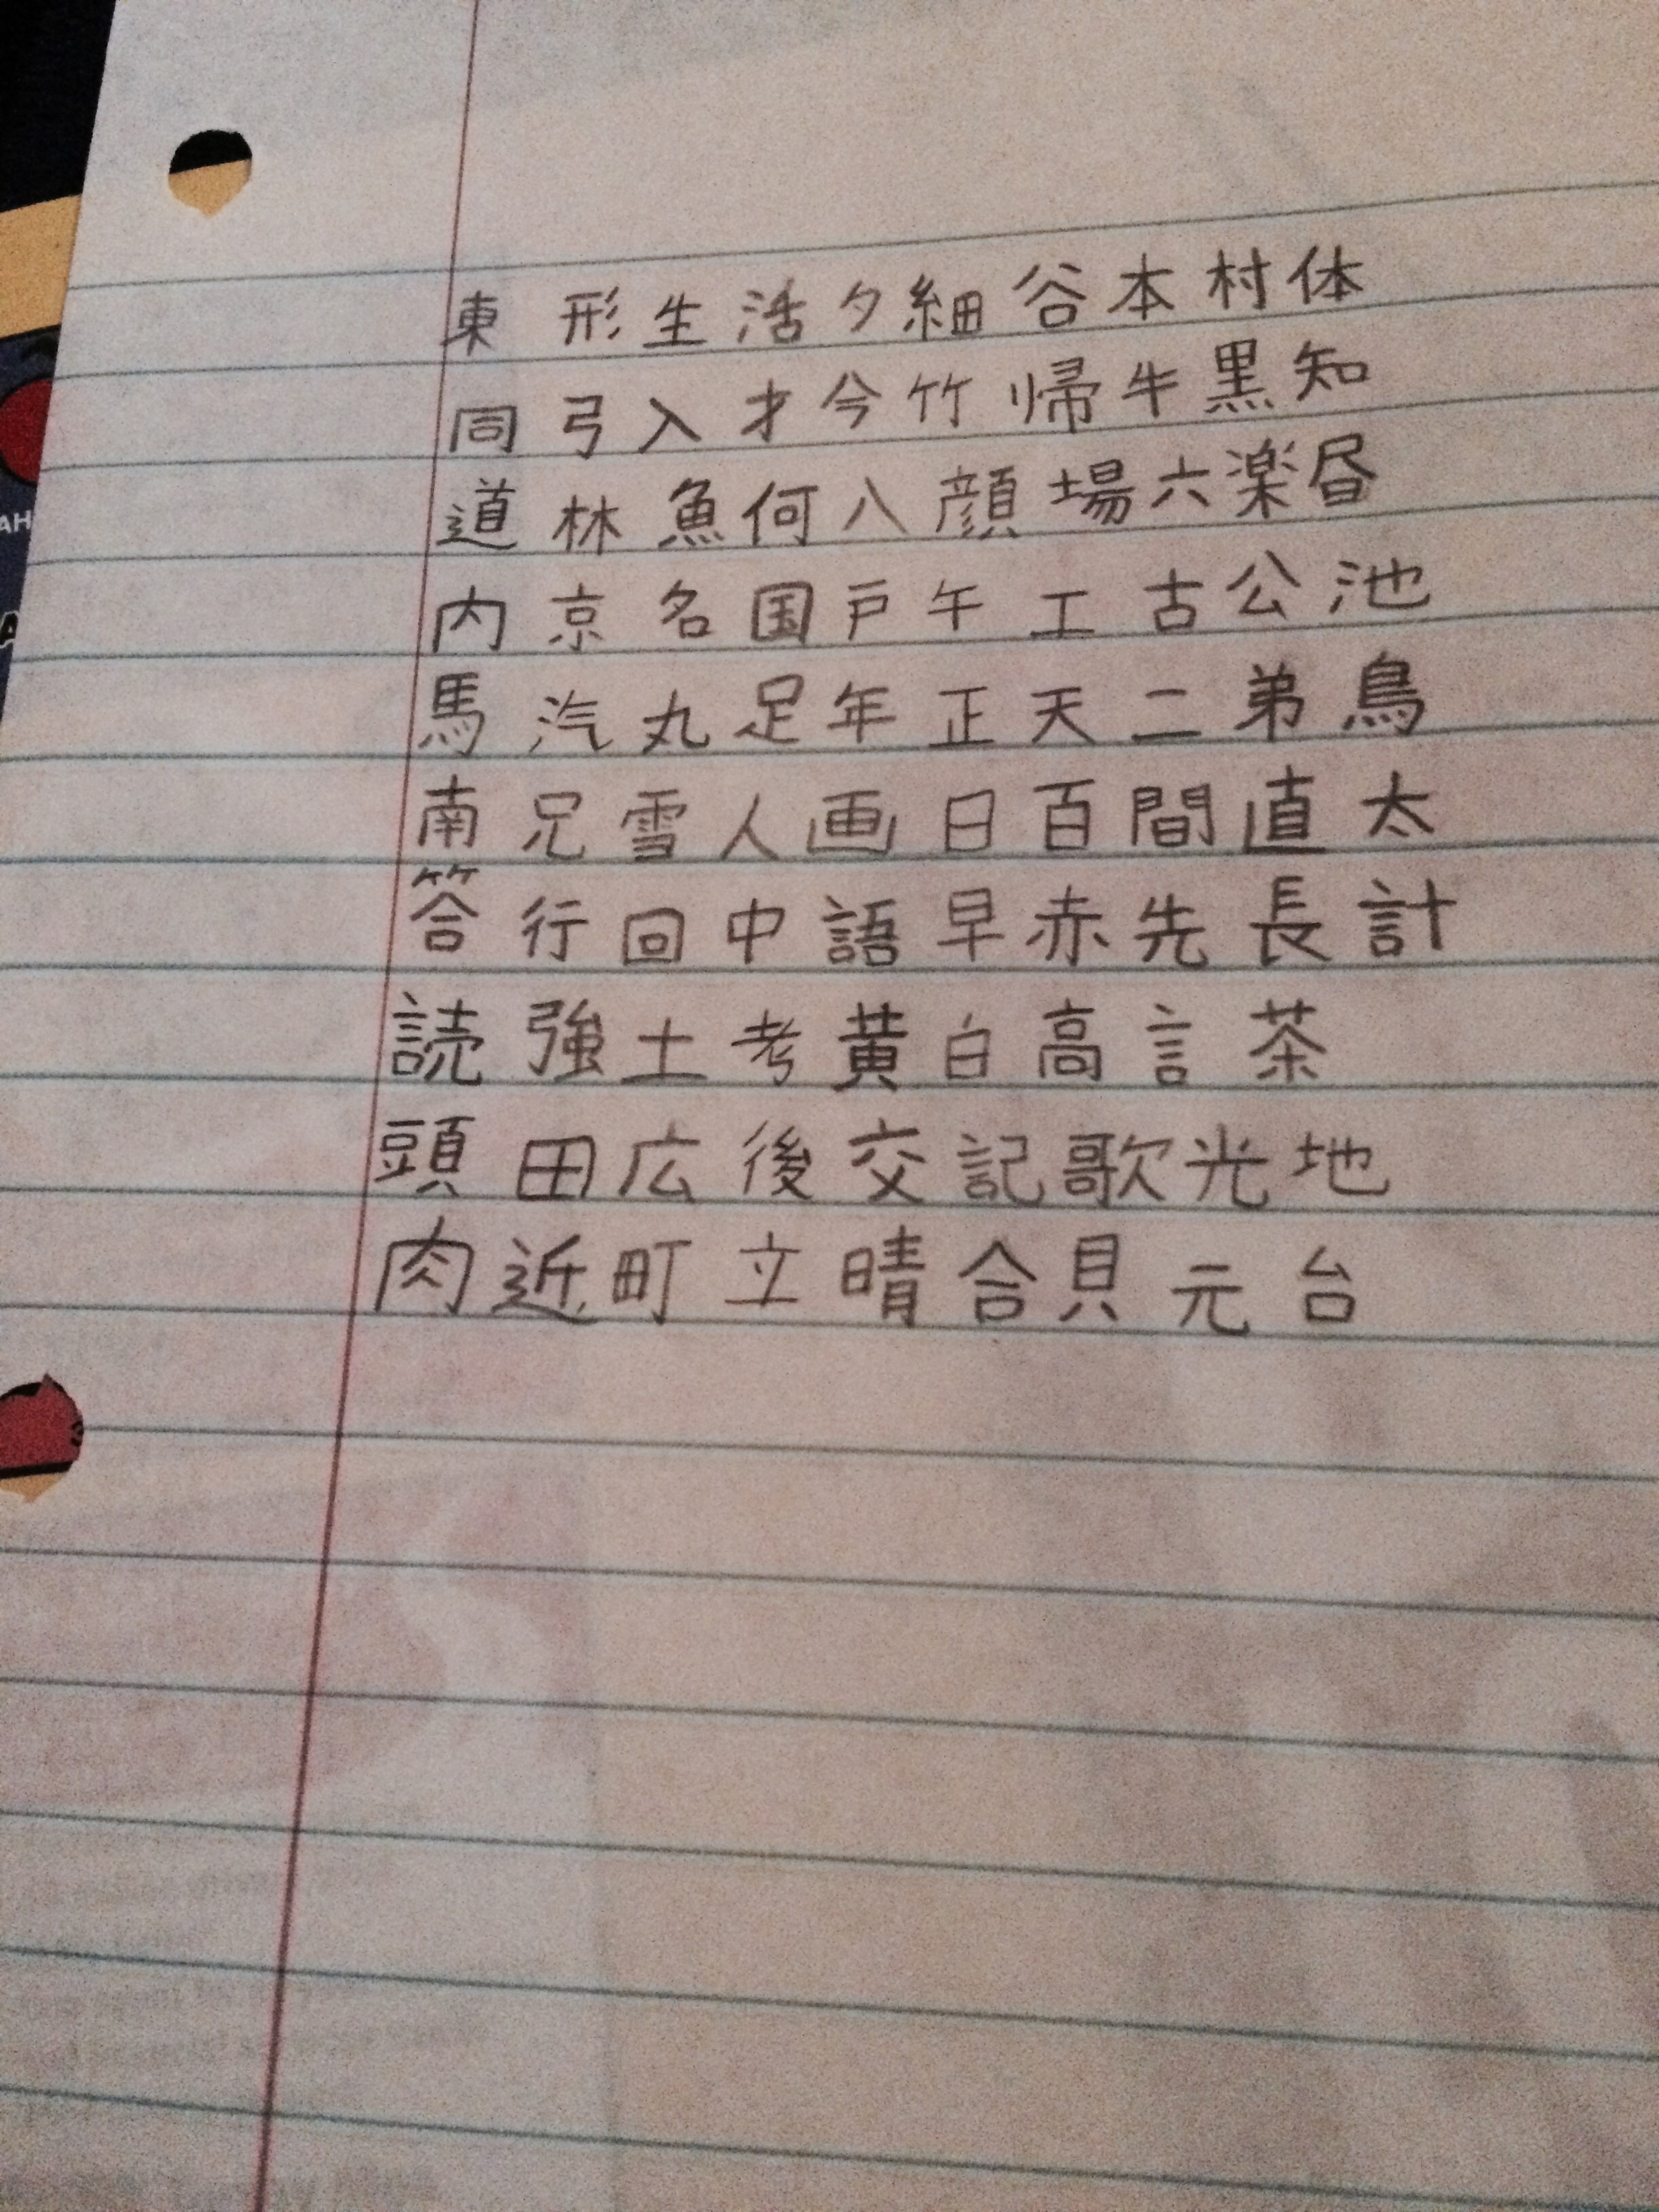 東 形 生 活 夕 細 谷 本 村 体
同 弓 入 才 今 竹 帰 牛 黒 知
道 林 魚 何 八 顔 場 六 楽 昼
内 京 名 国 戸 午 工 古 公 池
馬 汽 丸 足 年 正 天 二 弟 鳥
南 兄 雪 人 画 日 百 間 直 太
答 行 回 中 語 早 赤 先 長 計
読 強 土 考 黄 白 高 言 茶
頭 田 広 後 交 記 歌 光 地
肉 近 町 立 晴 合 貝 元 台
AH